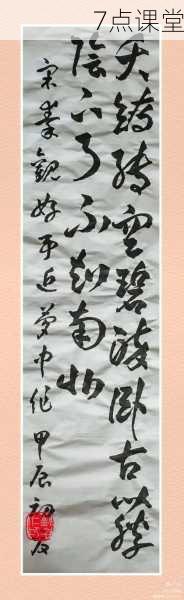 7点课堂
夭矯轉空碧醉卧古藤
陰下了不知南北
宋秦觀好事近夢中作甲辰初夏